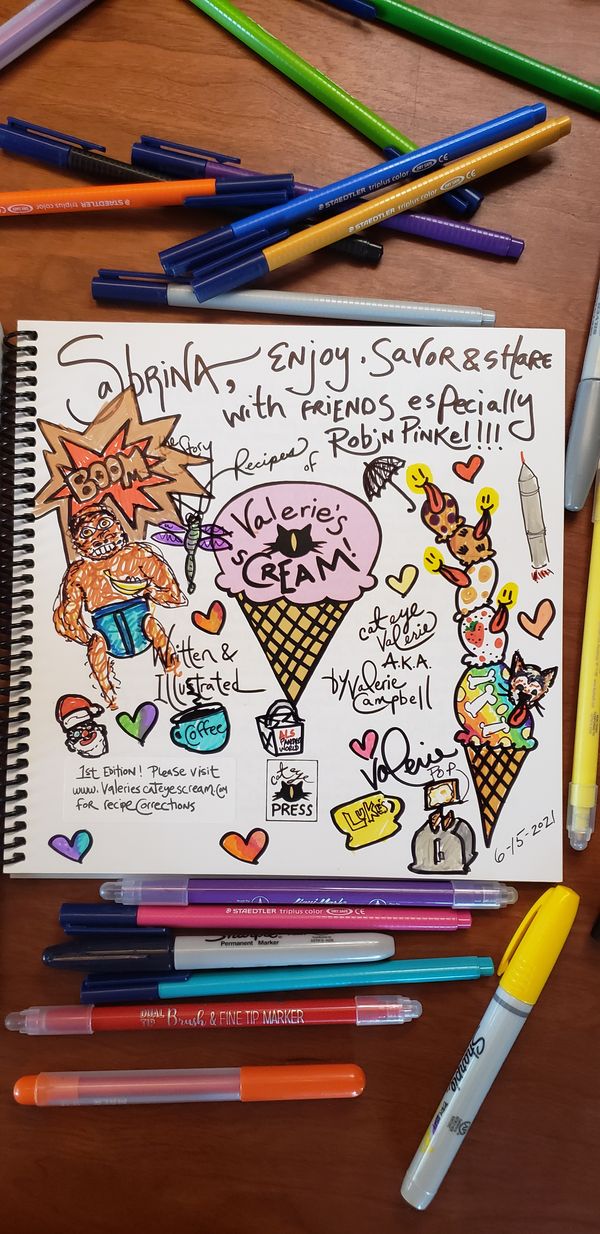 STAEDTLER triplus color DRY SAFE CE
STAEDTLER triplus color DRY SAFE CE
STAEDTLER triplus color DRY SAFE CE
SABRINA, ENJOY, SAVOR & SHARE
with FRIENDS especially
ROBIN PINKEL!!!!
BOOM
the Story
Recipes
of
Valerie's
SCREAM!
cat eye
Valerie
A.K.A.
by Valerie
Campbell
Written &
Illustrated
Coffee
ALS
PAMPERED
WORLD
1st Edition! Please visit
www.Valeriescateyescream.com
for recipe corrections
cat eye
PRESS
Valerie
POP
LUKE'S
6-15-2021
STAEDTLER triplus color DRY SAFE CE
Sharpie
Permanent Marker
DUAL TIP Brush & FINE TIP MARKER
Sharpie